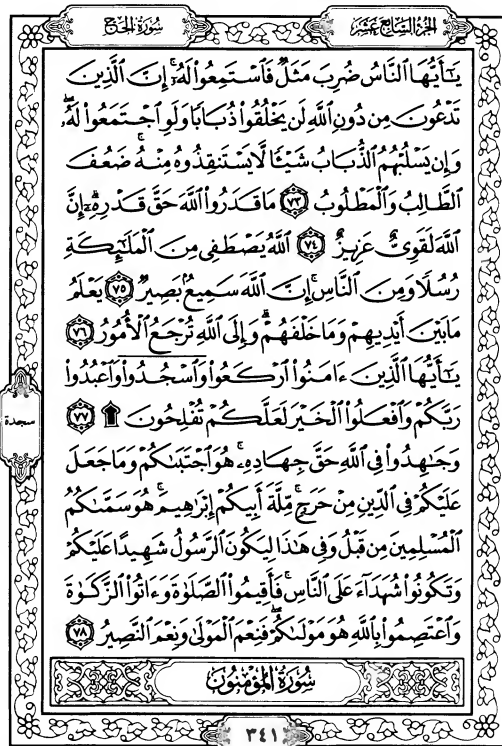 سُورَةُ الحَجّ
الجُزْءُ السَّابِعَ عَشَرَ
يَٰٓأَيُّهَا ٱلنَّاسُ ضُرِبَ مَثَلٌ فَٱسْتَمِعُوا۟ لَهُۥٓ ۚ إِنَّ ٱلَّذِينَ
تَدْعُونَ مِن دُونِ ٱللَّهِ لَن يَخْلُقُوا۟ ذُبَابًا وَلَوِ ٱجْتَمَعُوا۟ لَهُۥ ۖ
وَإِن يَسْلُبْهُمُ ٱلذُّبَابُ شَيْـًٔا لَّا يَسْتَنقِذُوهُ مِنْهُ ۚ ضَعُفَ
ٱلطَّالِبُ وَٱلْمَطْلُوبُ ٧٣ مَا قَدَرُوا۟ ٱللَّهَ حَقَّ قَدْرِهِۦٓ ۗ إِنَّ
ٱللَّهَ لَقَوِىٌّ عَزِيزٌ ٧٤ ٱللَّهُ يَصْطَفِى مِنَ ٱلْمَلَٰٓئِكَةِ
رُسُلًا وَمِنَ ٱلنَّاسِ ۚ إِنَّ ٱللَّهَ سَمِيعٌۢ بَصِيرٌ ٧٥ يَعْلَمُ
مَا بَيْنَ أَيْدِيهِمْ وَمَا خَلْفَهُمْ ۗ وَإِلَى ٱللَّهِ تُرْجَعُ ٱلْأُمُورُ ٧٦
يَٰٓأَيُّهَا ٱلَّذِينَ ءَامَنُوا۟ ٱرْكَعُوا۟ وَٱسْجُدُوا۟ وَٱعْبُدُوا۟
رَبَّكُمْ وَٱفْعَلُوا۟ ٱلْخَيْرَ لَعَلَّكُمْ تُفْلِحُونَ ۩ ٧٧
سجدة
وَجَٰهِدُوا۟ فِى ٱللَّهِ حَقَّ جِهَادِهِۦ ۚ هُوَ ٱجْتَبَىٰكُمْ وَمَا جَعَلَ
عَلَيْكُمْ فِى ٱلدِّينِ مِنْ حَرَجٍ ۚ مِّلَّةَ أَبِيكُمْ إِبْرَٰهِيمَ ۚ هُوَ سَمَّىٰكُمُ
ٱلْمُسْلِمِينَ مِن قَبْلُ وَفِى هَٰذَا لِيَكُونَ ٱلرَّسُولُ شَهِيدًا عَلَيْكُمْ
وَتَكُونُوا۟ شُهَدَآءَ عَلَى ٱلنَّاسِ ۚ فَأَقِيمُوا۟ ٱلصَّلَوٰةَ وَءَاتُوا۟ ٱلزَّكَوٰةَ
وَٱعْتَصِمُوا۟ بِٱللَّهِ هُوَ مَوْلَىٰكُمْ ۖ فَنِعْمَ ٱلْمَوْلَىٰ وَنِعْمَ ٱلنَّصِيرُ ٧٨
سُورَةُ المُؤْمِنُون
٣٤١